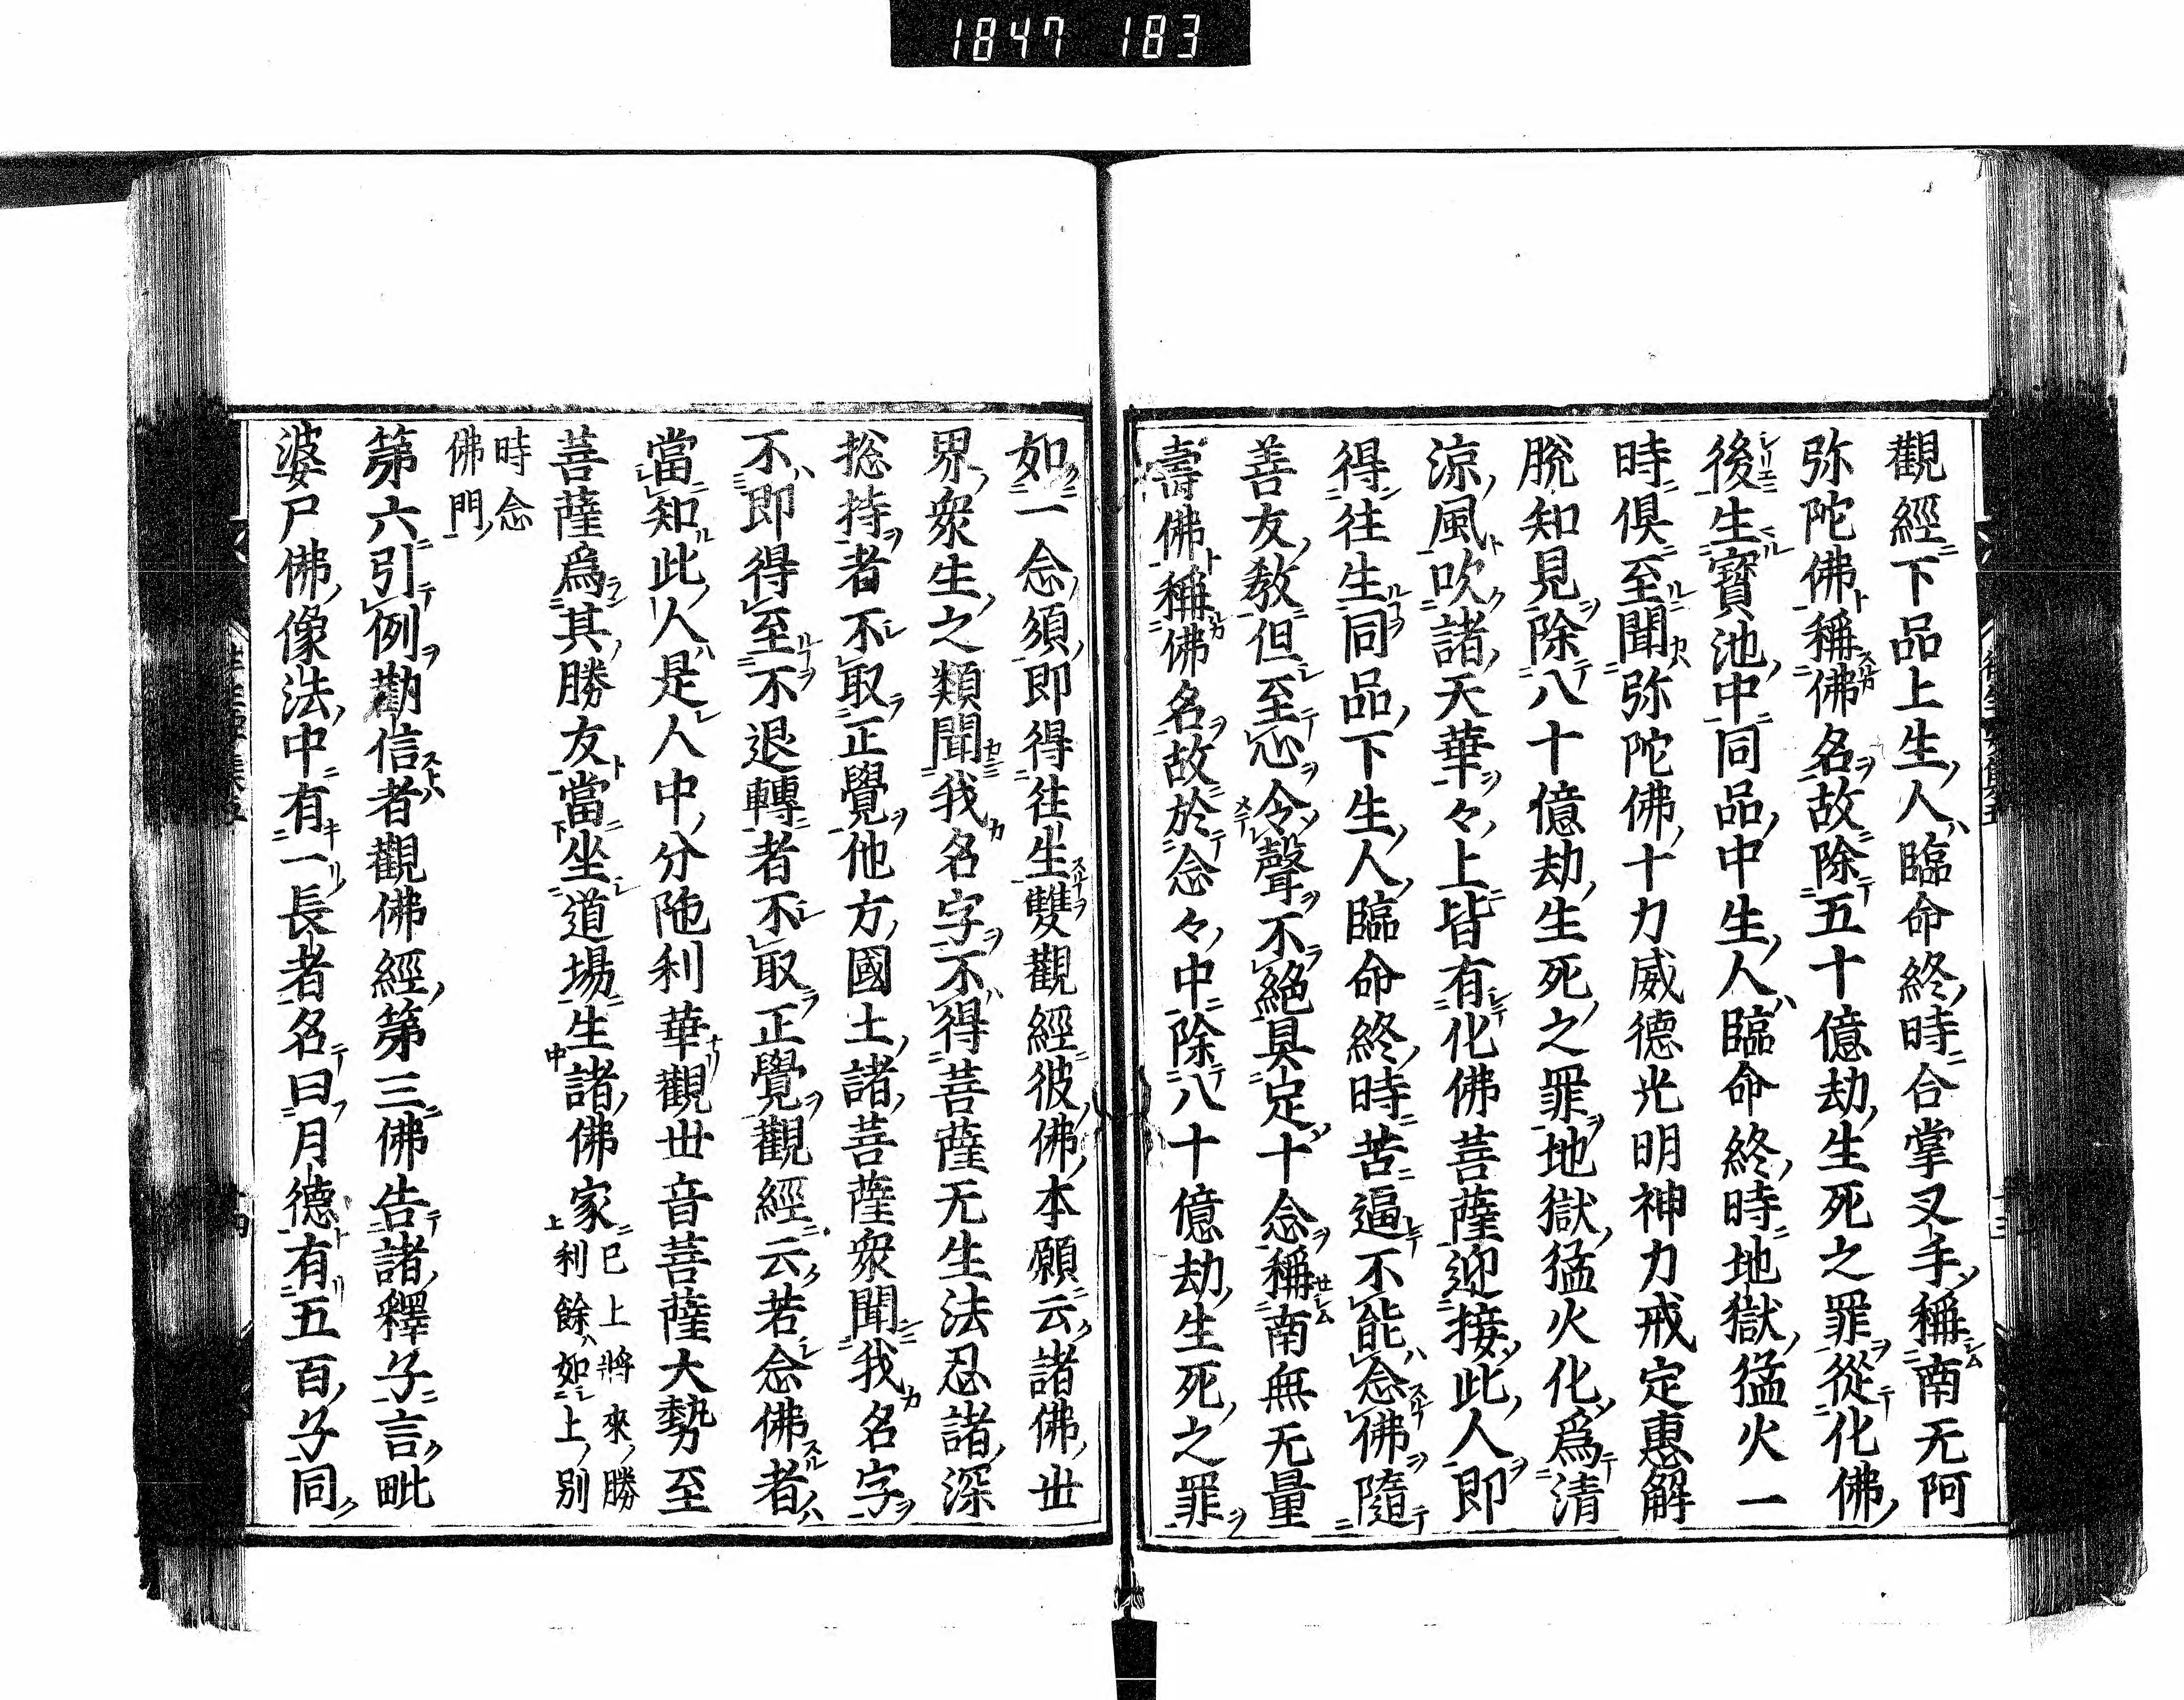 1847 183
觀經下品上生人臨命終時合掌叉手稱南无阿
弥陀佛稱佛名故除五十億劫生死之罪從化佛
後生寶池中同品中生人臨命終時地獄猛火一
時俱至聞弥陀佛十力威德光明神力戒定惠解
脫知見除八十億劫生死之罪地獄猛火化爲清
涼風吹諸天華々上皆有化佛菩薩迎接此人即
得往生同品下生人臨命終時苦逼不能念佛隨
善友教但至心令聲不絕具足十念稱南無无量
壽佛稱佛名故於念々中除八十億劫生死之罪
如一念須即得往生雙觀經彼佛本願云諸佛世
界衆生之類聞我名字不得菩薩无生法忍諸深
捴持者不取正覺他方國土諸菩薩衆聞我名字
不即得至不退轉者不取正覺觀經云若念佛者
當知此人是人中分陁利華觀世音菩薩大勢至
菩薩爲其勝友當坐道場生諸佛家已上將來勝利餘如上別
時念佛門
第六引例勸信者觀佛經第三佛告諸釋子言毗
婆尸佛像法中有一長者名曰月德有五百子同